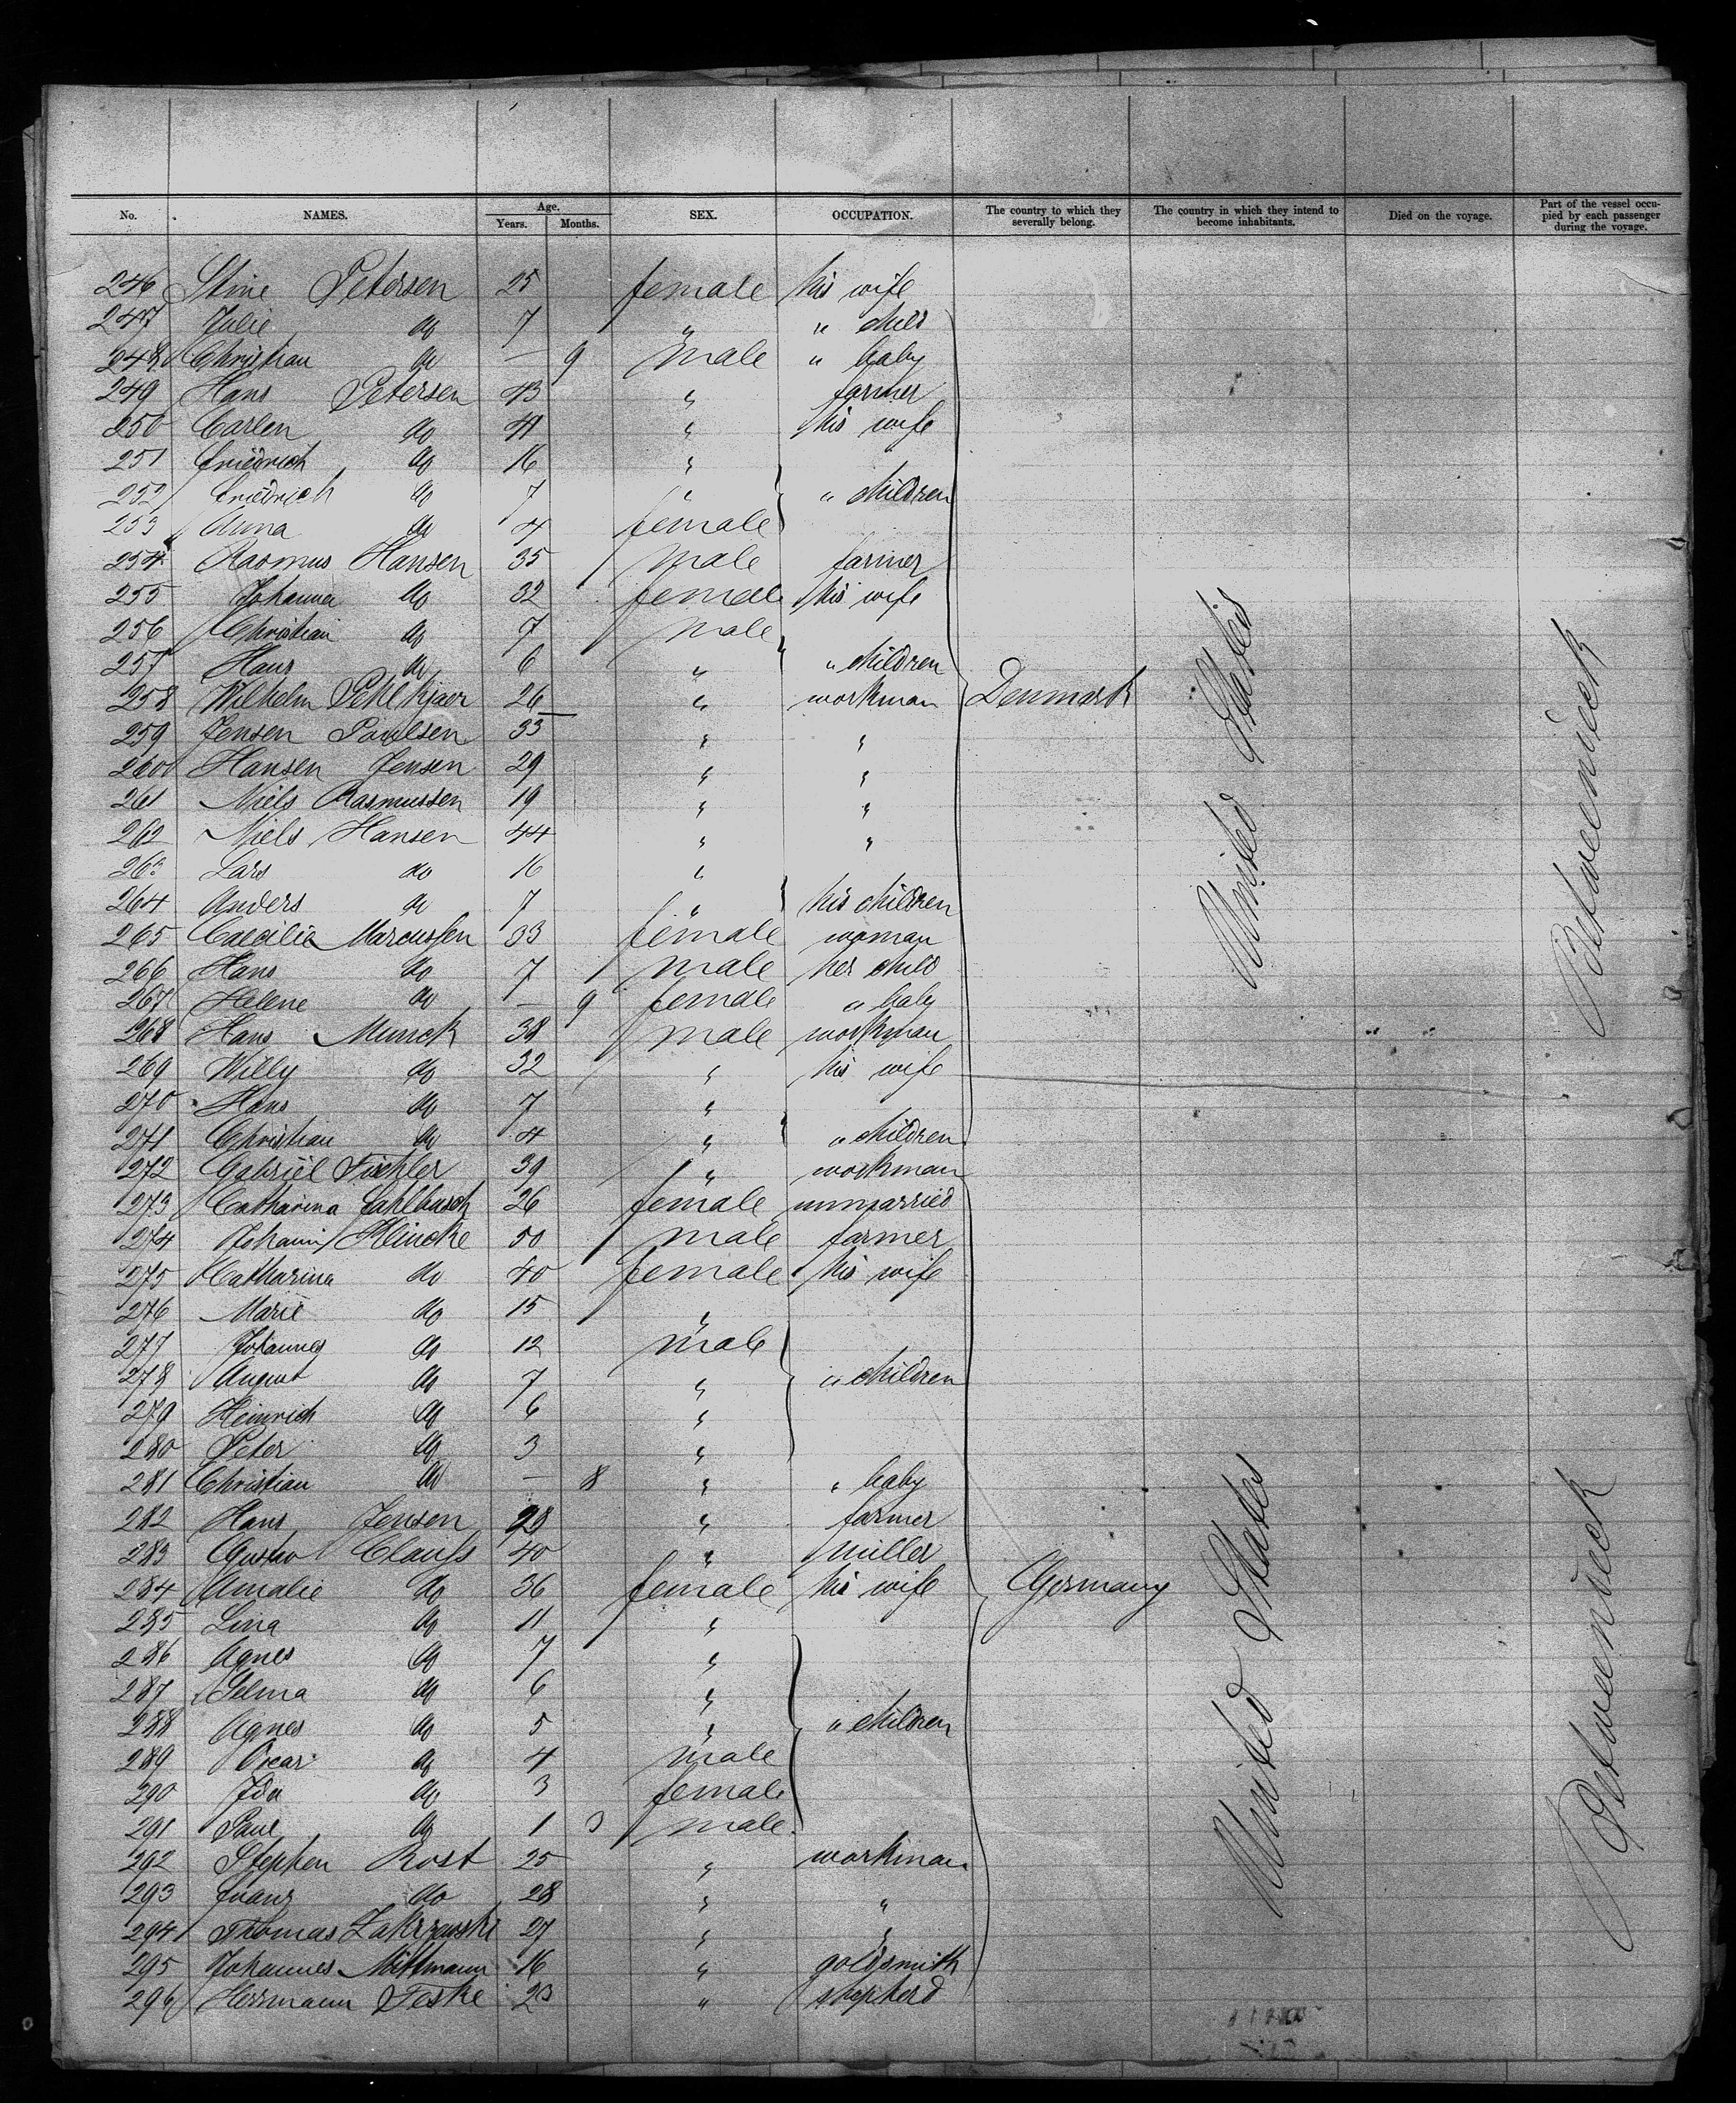 No. NAMES. Age. Years. Months. SEX. OCCUPATION. The country to which they severally belong. The country in which they intend to become inhabitants. Died on the voyage. Part of the vessel occupied by each passenger during the voyage.
246 Stine Petersen 25 female his wife
247 Julie do 7 " " child
248 Christian do — 9 male " baby
249 Hans Petersen 43 " farmer
250 Carlen do 41 " his wife
251 Friedrich do 16 "
252 Friedrich do 7 " " children
253 Anna do 4 female
254 Rasmus Hansen 35 male farmer
255 Johanna do 32 female his wife
256 Christian do 7 male
257 Hans do 6 " " children
258 Wilhelm Pehlkjaer 26 " workman Denmark United States Betweendeck
259 Jensen Paulsen 33 " "
260 Hansen Jensen 29 " "
261 Niels Rasmussen 19 " "
262 Niels Hansen 44 " "
263 Lars do 16 "
264 Anders do 7 " his children
265 Caecilie Marcussen 33 female woman
266 Hans do 7 male her child
267 Helene do — 9 female " baby
268 Hans Munck 38 male workman
269 Willy do 32 " his wife
270 Hans do 7 "
271 Christian do 4 " " children
272 Gabriel 39 " workman
273 Catharina Fahlbusch 26 female unmarried
274 Johann Klincke 50 male farmer
275 Catharina do 40 female his wife
276 Marie do 15 "
277 Johannes do 12 male
278 August do 7 " " children
279 Heinrich do 6 "
280 Peter do 3 "
281 Christian do — 8 " " baby
282 Hans Jensen 28 " farmer
283 Gustav Clauss 40 " miller
284 Amalie do 36 female his wife Germany United States Betweendeck
285 Lina do 11 "
286 Agnes do 7 "
287 Selma do 6 "
288 Agnes do 5 " " children
289 Oscar do 4 male
290 Ida do 3 female
291 Paul do 1 male
292 Stephen Rost 25 " workman
293 Franz do 28 " "
294 Thomas Zakrzewski 27 " "
295 Johannes Mittmann 16 " goldsmith
296 Herrmann Teske 23 " shepherd